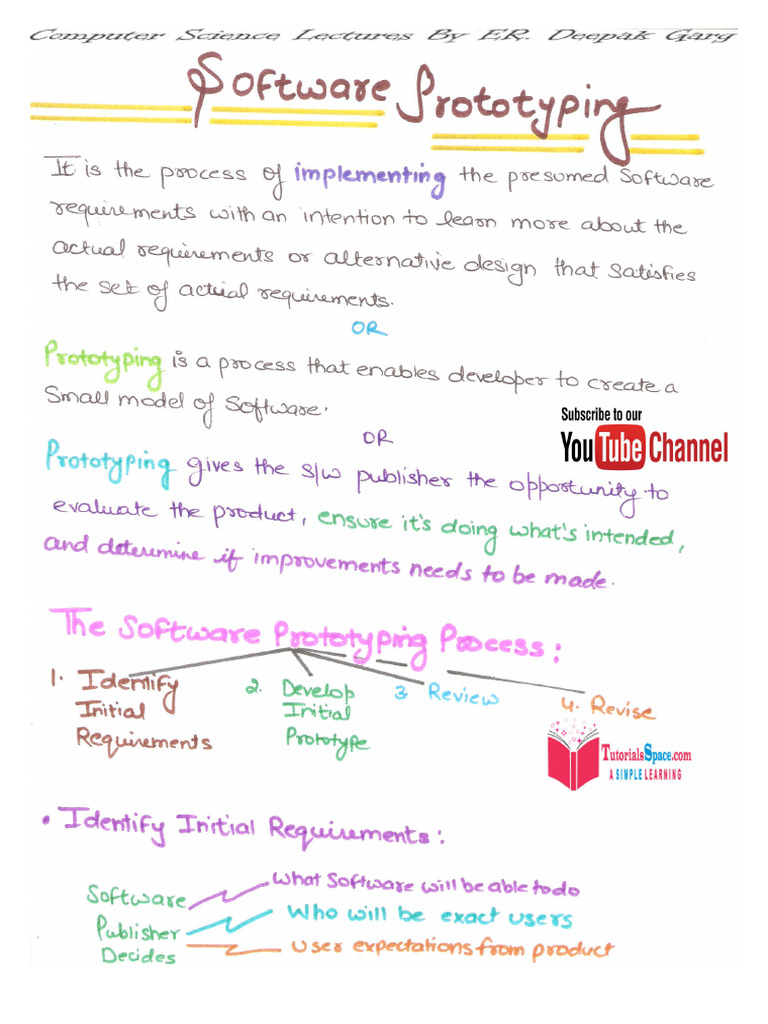 Computer Science Lectures By ER. Deepak Garg
Software Prototyping
It is the process of implementing the presumed Software
requirements with an intention to learn more about the
actual requirements or alternative design that satisfies
the set of actual requirements.
OR
Prototyping is a process that enables developer to create a
Small model of Software.
Subscribe to our
YouTube Channel
OR
Prototyping gives the S/W publisher the opportunity to
evaluate the product, ensure it's doing what's intended,
and determine if improvements needs to be made.
The Software Prototyping Process:
1. Identify
Initial
Requirements
2. Develop
Initial
Prototype
3 Review
4. Revise
TutorialsSpace.com
A SIMPLE LEARNING
• Identify Initial Requirements:
Software
Publisher
Decides
What Software will be able to do
Who will be exact users
User expectations from product